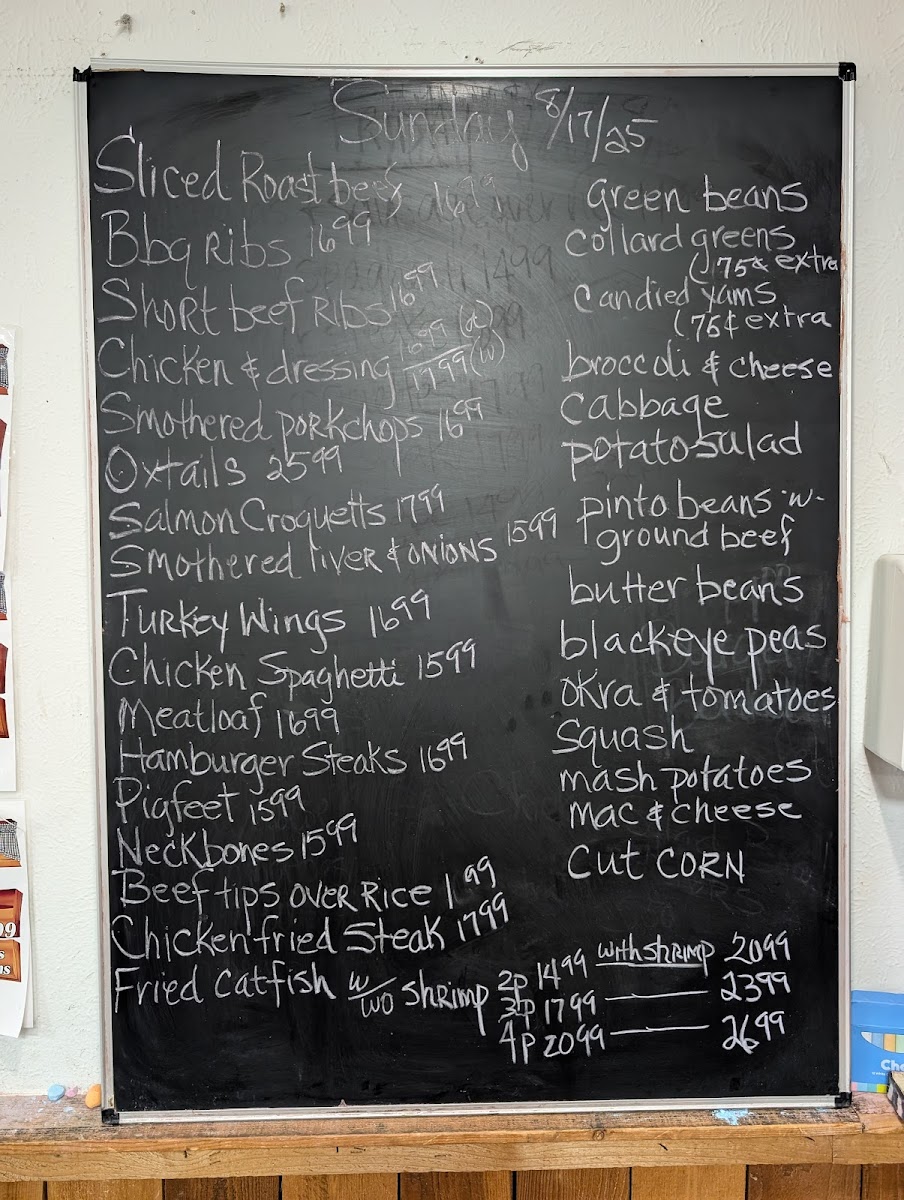 Sunday 8/17/25
Sliced Roast beef 1699
Bbq Ribs 1699
Short beef Ribs 1699
Chicken & dressing 1699 (d)
1799 (w)
Smothered porkchops 1699
Oxtails 2599
Salmon Croquetts 1799
Smothered liver & onions 1599
Turkey Wings 1699
Chicken Spaghetti 1599
Meatloaf 1699
Hamburger Steaks 1699
Pigfeet 1599
Neckbones 1599
Beef tips over Rice
Chicken fried Steak 1799
Fried Catfish w/wo shrimp
2p 1499 with shrimp 2099
3p 1799 — 2399
4p 2099 — 2699
green beans
collard greens
(.75¢ extra
candied yams
(.75¢ extra
broccoli & cheese
cabbage
potato salad
pinto beans -w-
ground beef
butter beans
blackeye peas
okra & tomatoes
squash
mash potatoes
mac & cheese
cut corn